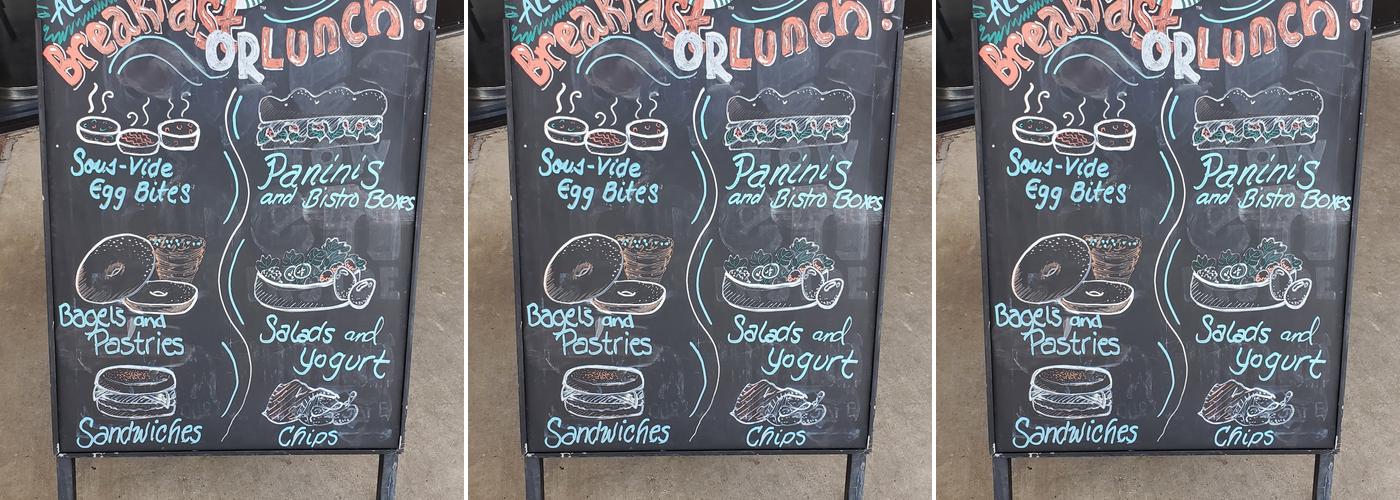 Breakfast
OR Lunch!
Sous-Vide
Egg Bites
Bagels and
Pastries
Sandwiches
Paninis
and Bistro Boxes
Salads and
Yogurt
Chips
Breakfast
OR Lunch!
Sous-Vide
Egg Bites
Bagels and
Pastries
Sandwiches
Paninis
and Bistro Boxes
Salads and
Yogurt
Chips
Breakfast
OR Lunch!
Sous-Vide
Egg Bites
Bagels and
Pastries
Sandwiches
Paninis
and Bistro Boxes
Salads and
Yogurt
Chips